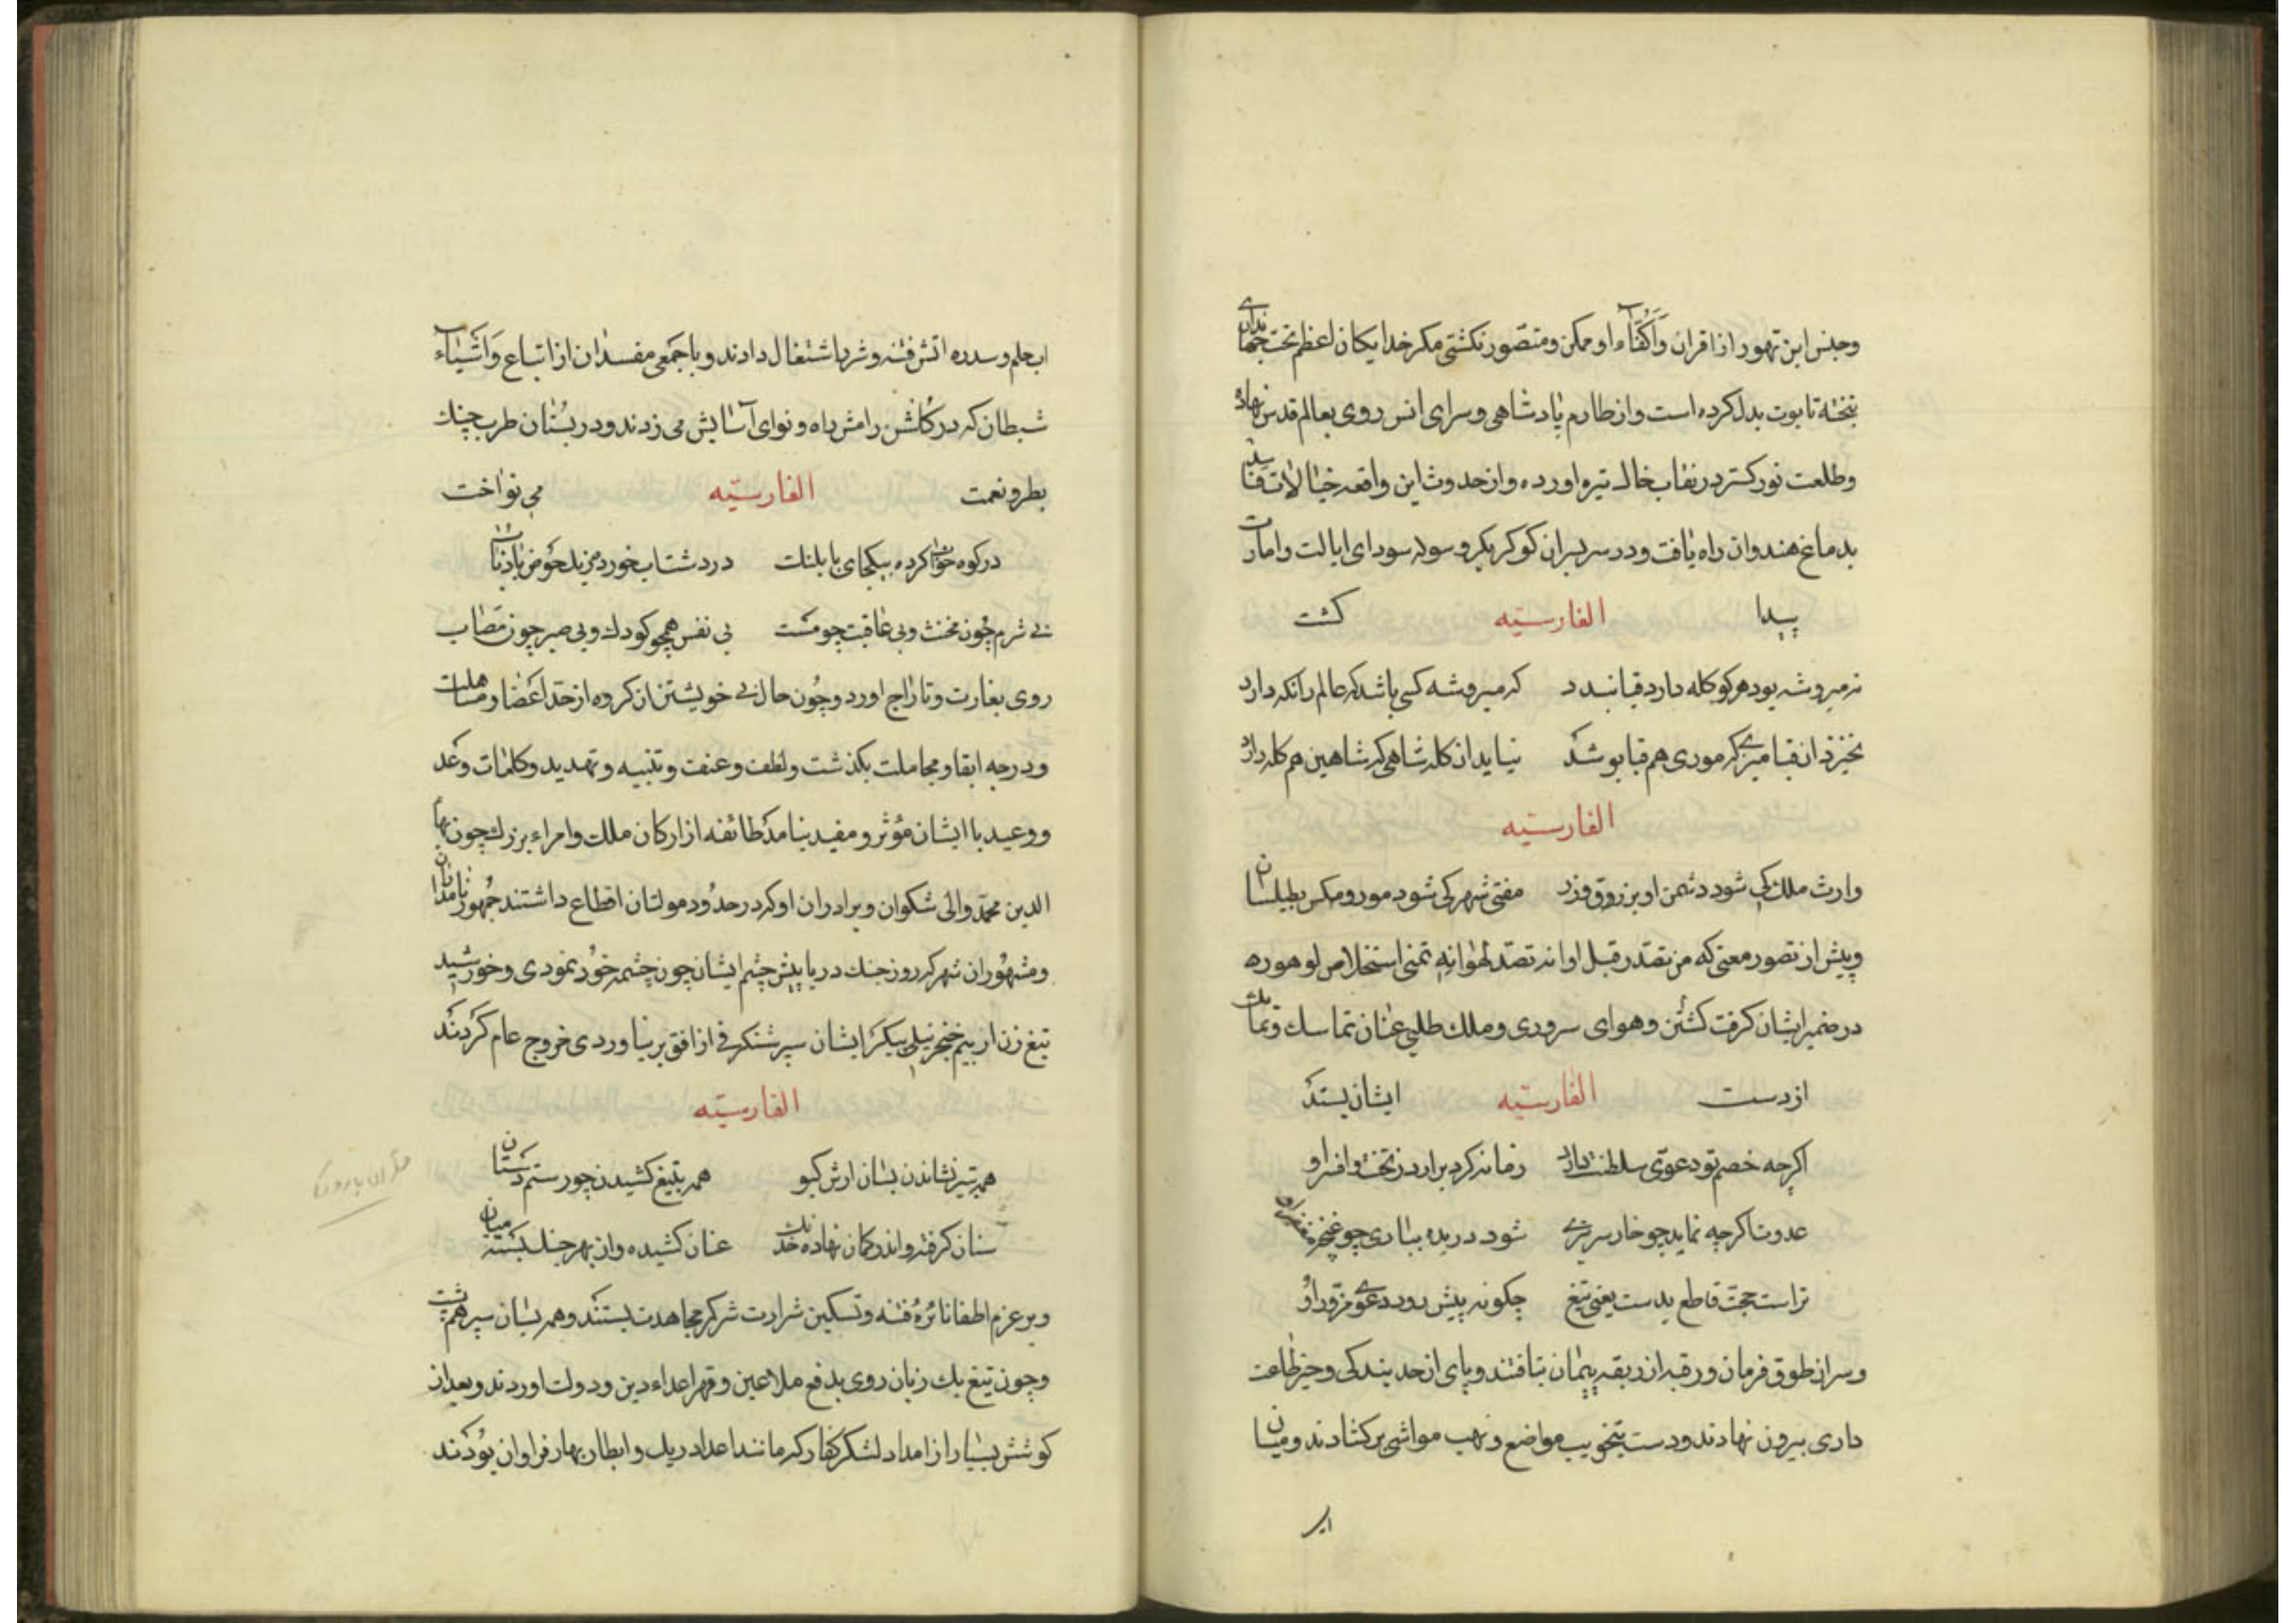 وجنس این تهور از اقران وَاَکْفَآء او ممکن و متصّور نکشتی مکر خدایکان اعظم تخت جهانداری
بتخته تابوت بدل کرده است و از طارم پادشاهی و سرای انس روی بعالم قدس نهاده
وطلعت نور کستر در نقاب خاک تیره اورده و از حدوث این واقعه خیالات فاسد
بدماغ هندوان راه یافت و در سر پسران کوکر بکر و سوله سودای ایالت و امارت
پیدا الفارسیّه کشت
نه میر و شه بود هر کو کله دارد قبا بندد که میر و شه کسی باشد که عالم را نکه دارد
نخیزد از قبا میری که موری هم قبا پوشد نیاید از کله شاهی که شاهین هم کله دارد
الفارسیّه
وارث ملک کی شود دشمن او بزرق و زر مفتی شهر کی شود مور و مکس بطیلسان
و پیش از تصور معنی که من تصّدر قبل اوانه تصّدی لهوانه تمنی استخلاص لوهوره
در ضمیر ایشان کرفت کشتن و هوای سروری و ملک طلبی عنان تماسک و تمالک
از دست الفارسیّه ایشان بستد
اکرچه خصم تو دعوّی سلطنت دارد زمانه کرد برارد ز تخت و افسر او
عدوت اکرچه نماید چو خار سر تیزی شود دریده بباری چو غنچه
تراست حجّت قاطع بدست یعنی تیغ چکونه پیش رود دعوی مزوّر او
و سر از طوق فرمان و رقبه از ربقه پیمان بتافتند و پای از حد بندکی و حیّز طاعت
داری بیرون نهادند و دست بتخریب مواضع و نهب مواشی برکشادند و میان
ایر
اب حلم و سدره اتش فتنه و شر باشتغال دادند و با جمعی مفسدان از اتباع وَاَشیَاء
شیطان که در کلشن رامش راه و نوای آسایش می زدند و در بستان طرب چنک
بطر و نعمت الفارسیّه می نواخت
در کوه خواب کرده بیکجای با پلنک در دشت اب خورده ز یک حوض با
بی شرم چون مخنث و بی عاقبت چو مست بی نفس همچو کودک و بی صبر چون مصاب
روی بغارت و تاراج اورد و چون حال بی خویشتنان کروه از حّد اغضا و مساهلت
و درجه ابقا و مجاملت بکذشت و لطف و عنف و تنبیه و تهدید و کلمات وعد
و وعید با ایشان مؤثر و مفید نیامد طائفه از ارکان ملک و امراء بزرک چون بهاء
الدین محمّد والی شنکوان و برادران او که در حدود مولتان اقطاع داشتند جمهور نامداران
و مشهوران شهر که روز جنک دریا پیش چشم ایشان چون چشمه خوُرد نمودی و خورشید
تیغ زن از بیم خنجر نیلی پیکر ایشان سپر شنکرفی از افق بر نیاوردی خروج عام کردند
الفارسیّه
همه بتیر نشاندن بسان ارش کیو همه بتیغ کشیدن چو رستم دستان
سنان کرفته و اندر کمان نهاده خدنک عنان کشیده و از بهر جنک بسته میان
و بر عزم اطفا نائرهٔ فتنه و تسکین شرارت شر کمر مجاهدت بستند و همه بسان سپر هم پشت
و چون تیغ یک زبان روی بدفع ملاعین و قهر اعداء دین و دولت اوردند و بعد از
کوشش بسیار از امداد لشکر کفار که مانند اعداد ریک و ابطار بهار فراوان بودند